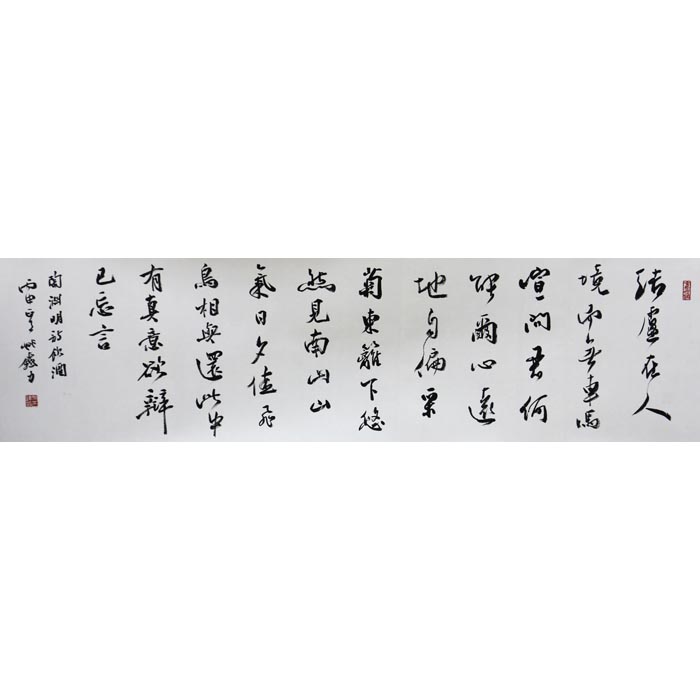 結廬在人
境而無車馬
喧問君何
能爾心遠
地自偏采
菊東籬下悠
然見南山山
氣日夕佳飛
鳥相與還此中
有真意欲辯
已忘言
陶渊明詩飲酒